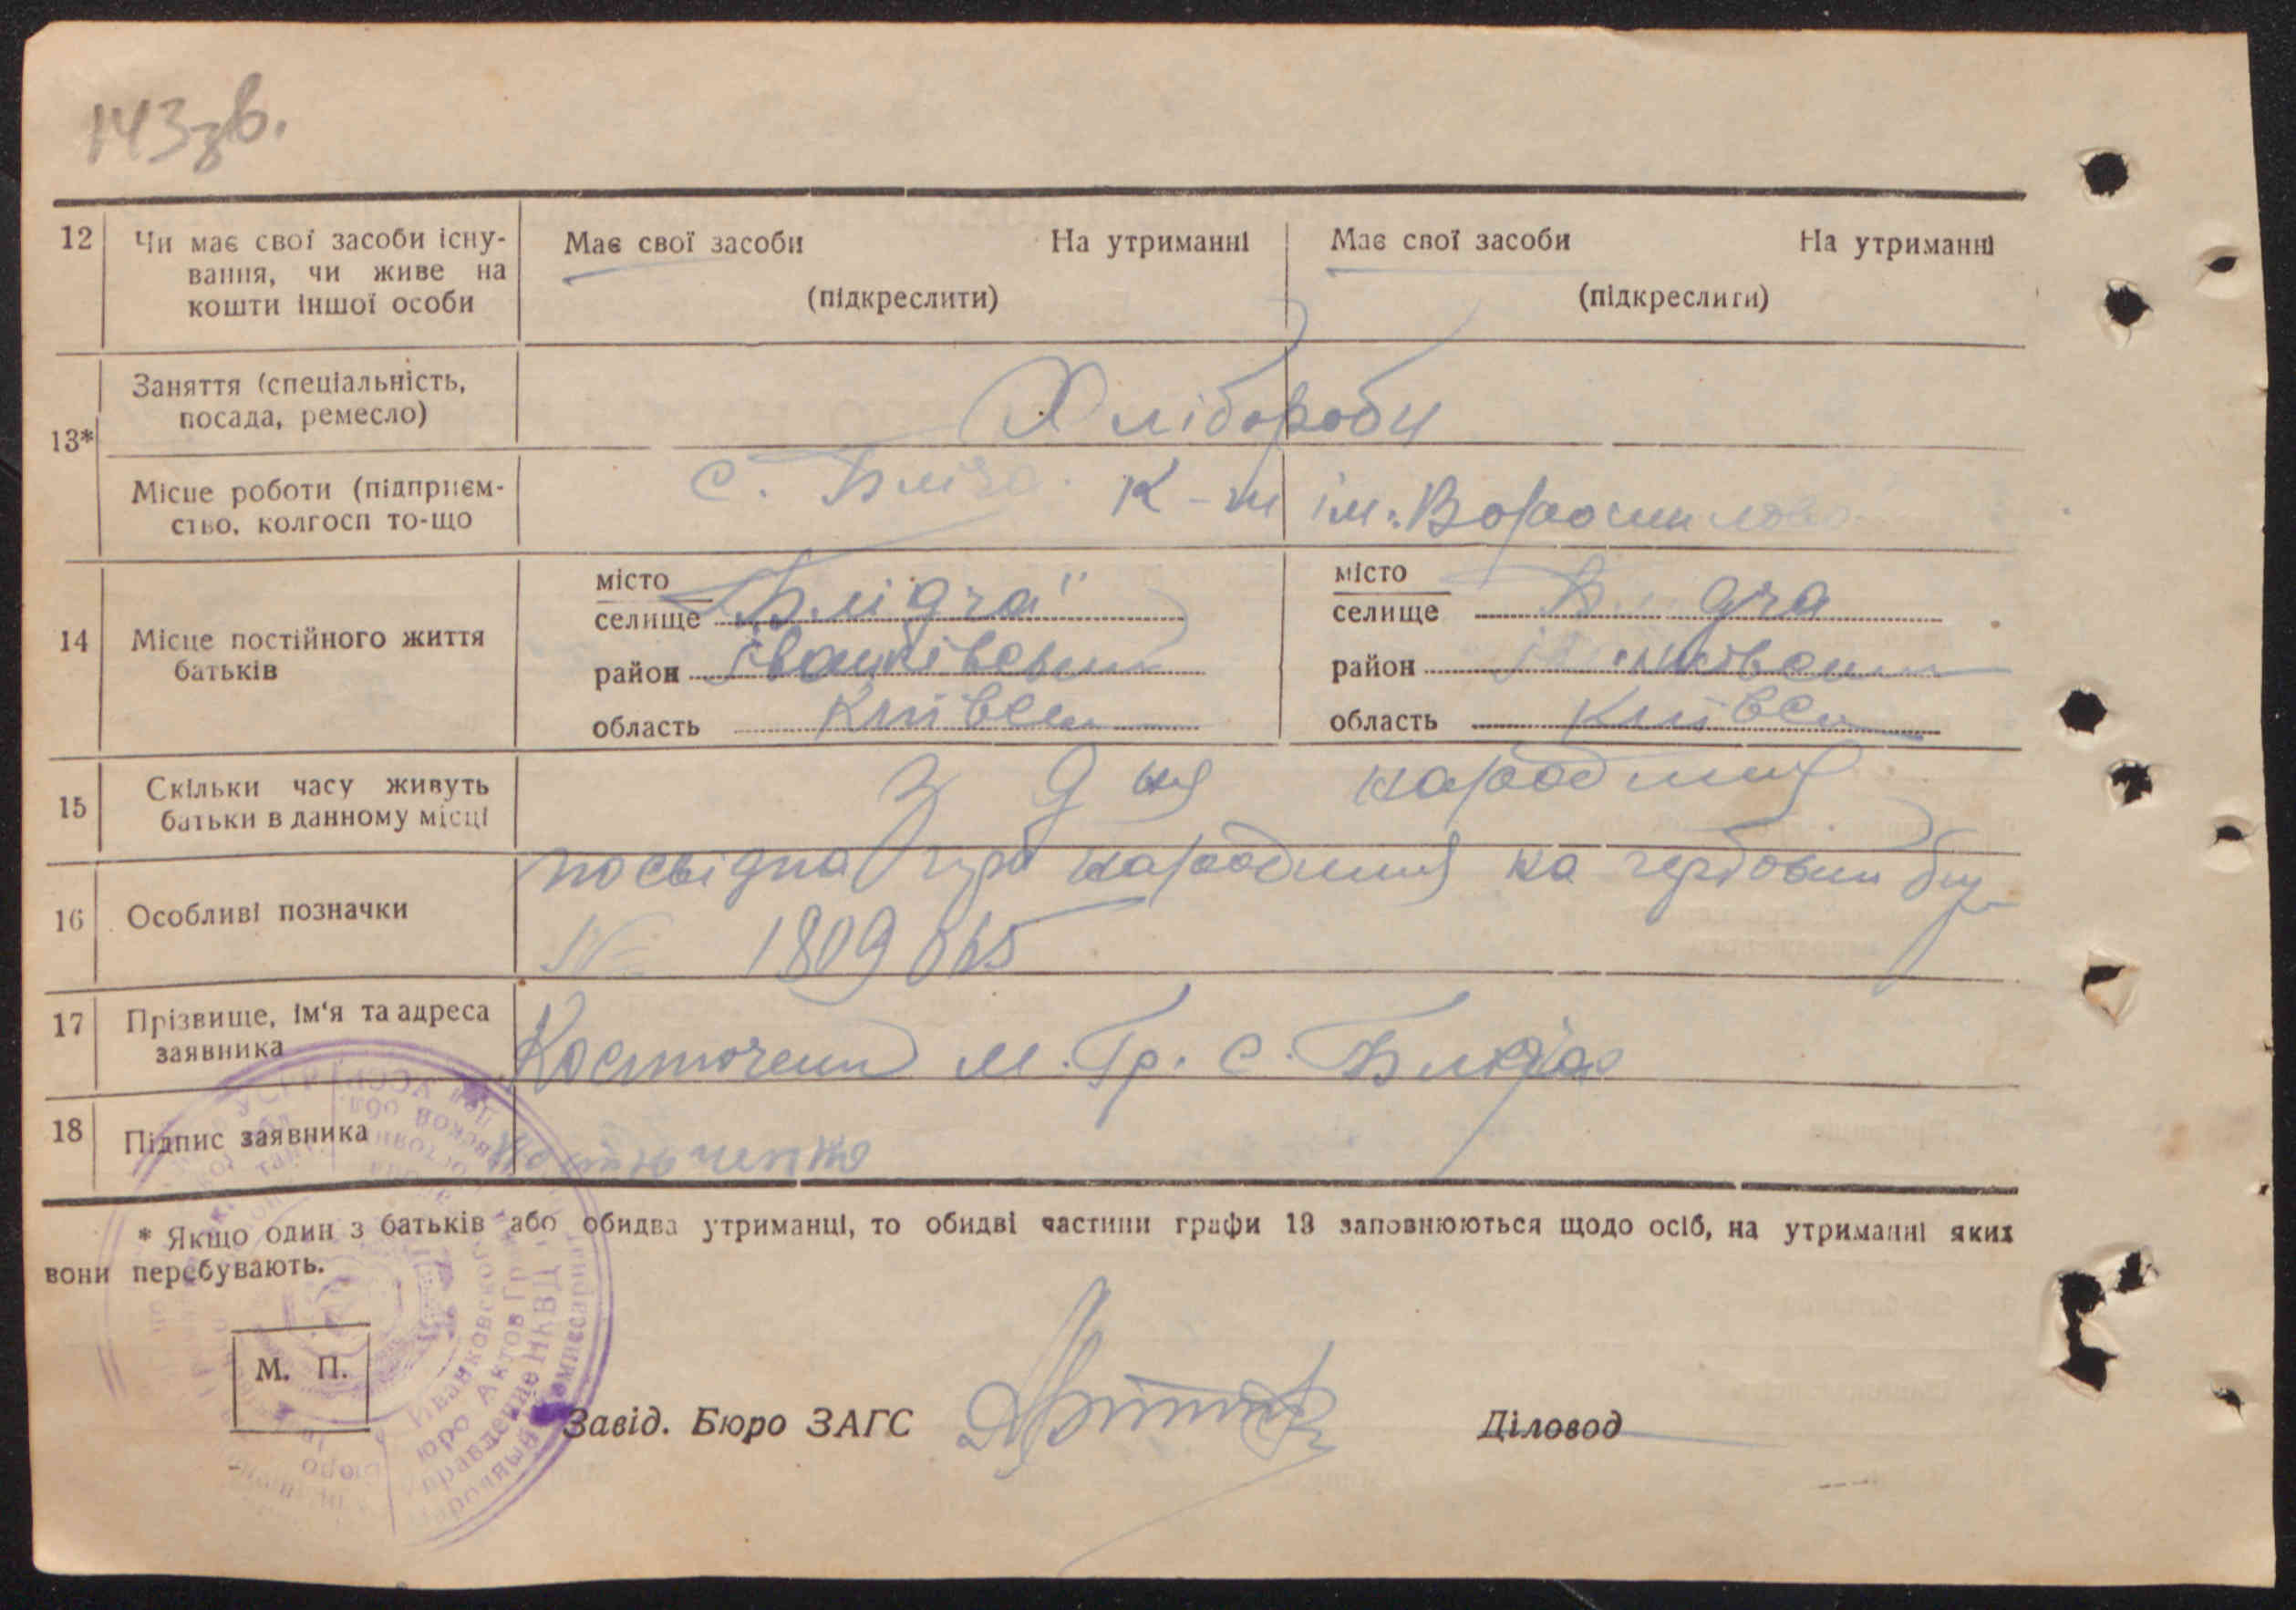 143зв.
12 Чи має свої засоби існу-
вання, чи живе на
кошти іншої особи
Має свої засоби На утриманні
(підкреслити)
Має свої засоби На утриманні
(підкреслити)
13*
Заняття (спеціальність,
посада, ремесло)
Хлібороби
Місце роботи (підприєм-
ство, колгосп то-що
с. Бліча. К-п ім. Ворошилова
14 Місце постійного життя
батьків
місто
селище Блідча
район Іванківськ
область Київськ
місто
селище Блідча
район Іванківськ
область Київськ
15 Скільки часу живуть
батьки в данному місці
З дня народження
16 Особливі позначки
про народження на гербовім
№ 1809
17 Прізвище, ім'я та адреса
заявника
Костюченко М. Гр. с. Блідча
18 Підпис заявника
Костюченко
* Якщо один з батьків або обидва утриманці, то обидві частини графи 13 заповнюються щодо осіб, на утриманні яких
вони перебувають.
М. П.
Завід. Бюро ЗАГС
Діловод